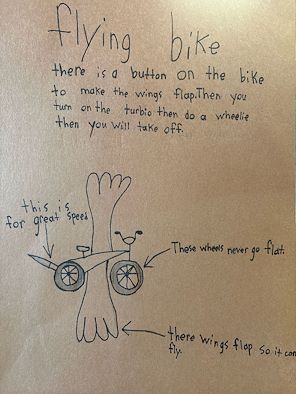 flying bike
there is a button on the bike
to make the wings flap. Then you
turn on the turbio then do a wheelie
then you will take off.
this is
for great speed
These wheels never go flat.
there wings flap so it can
fly.